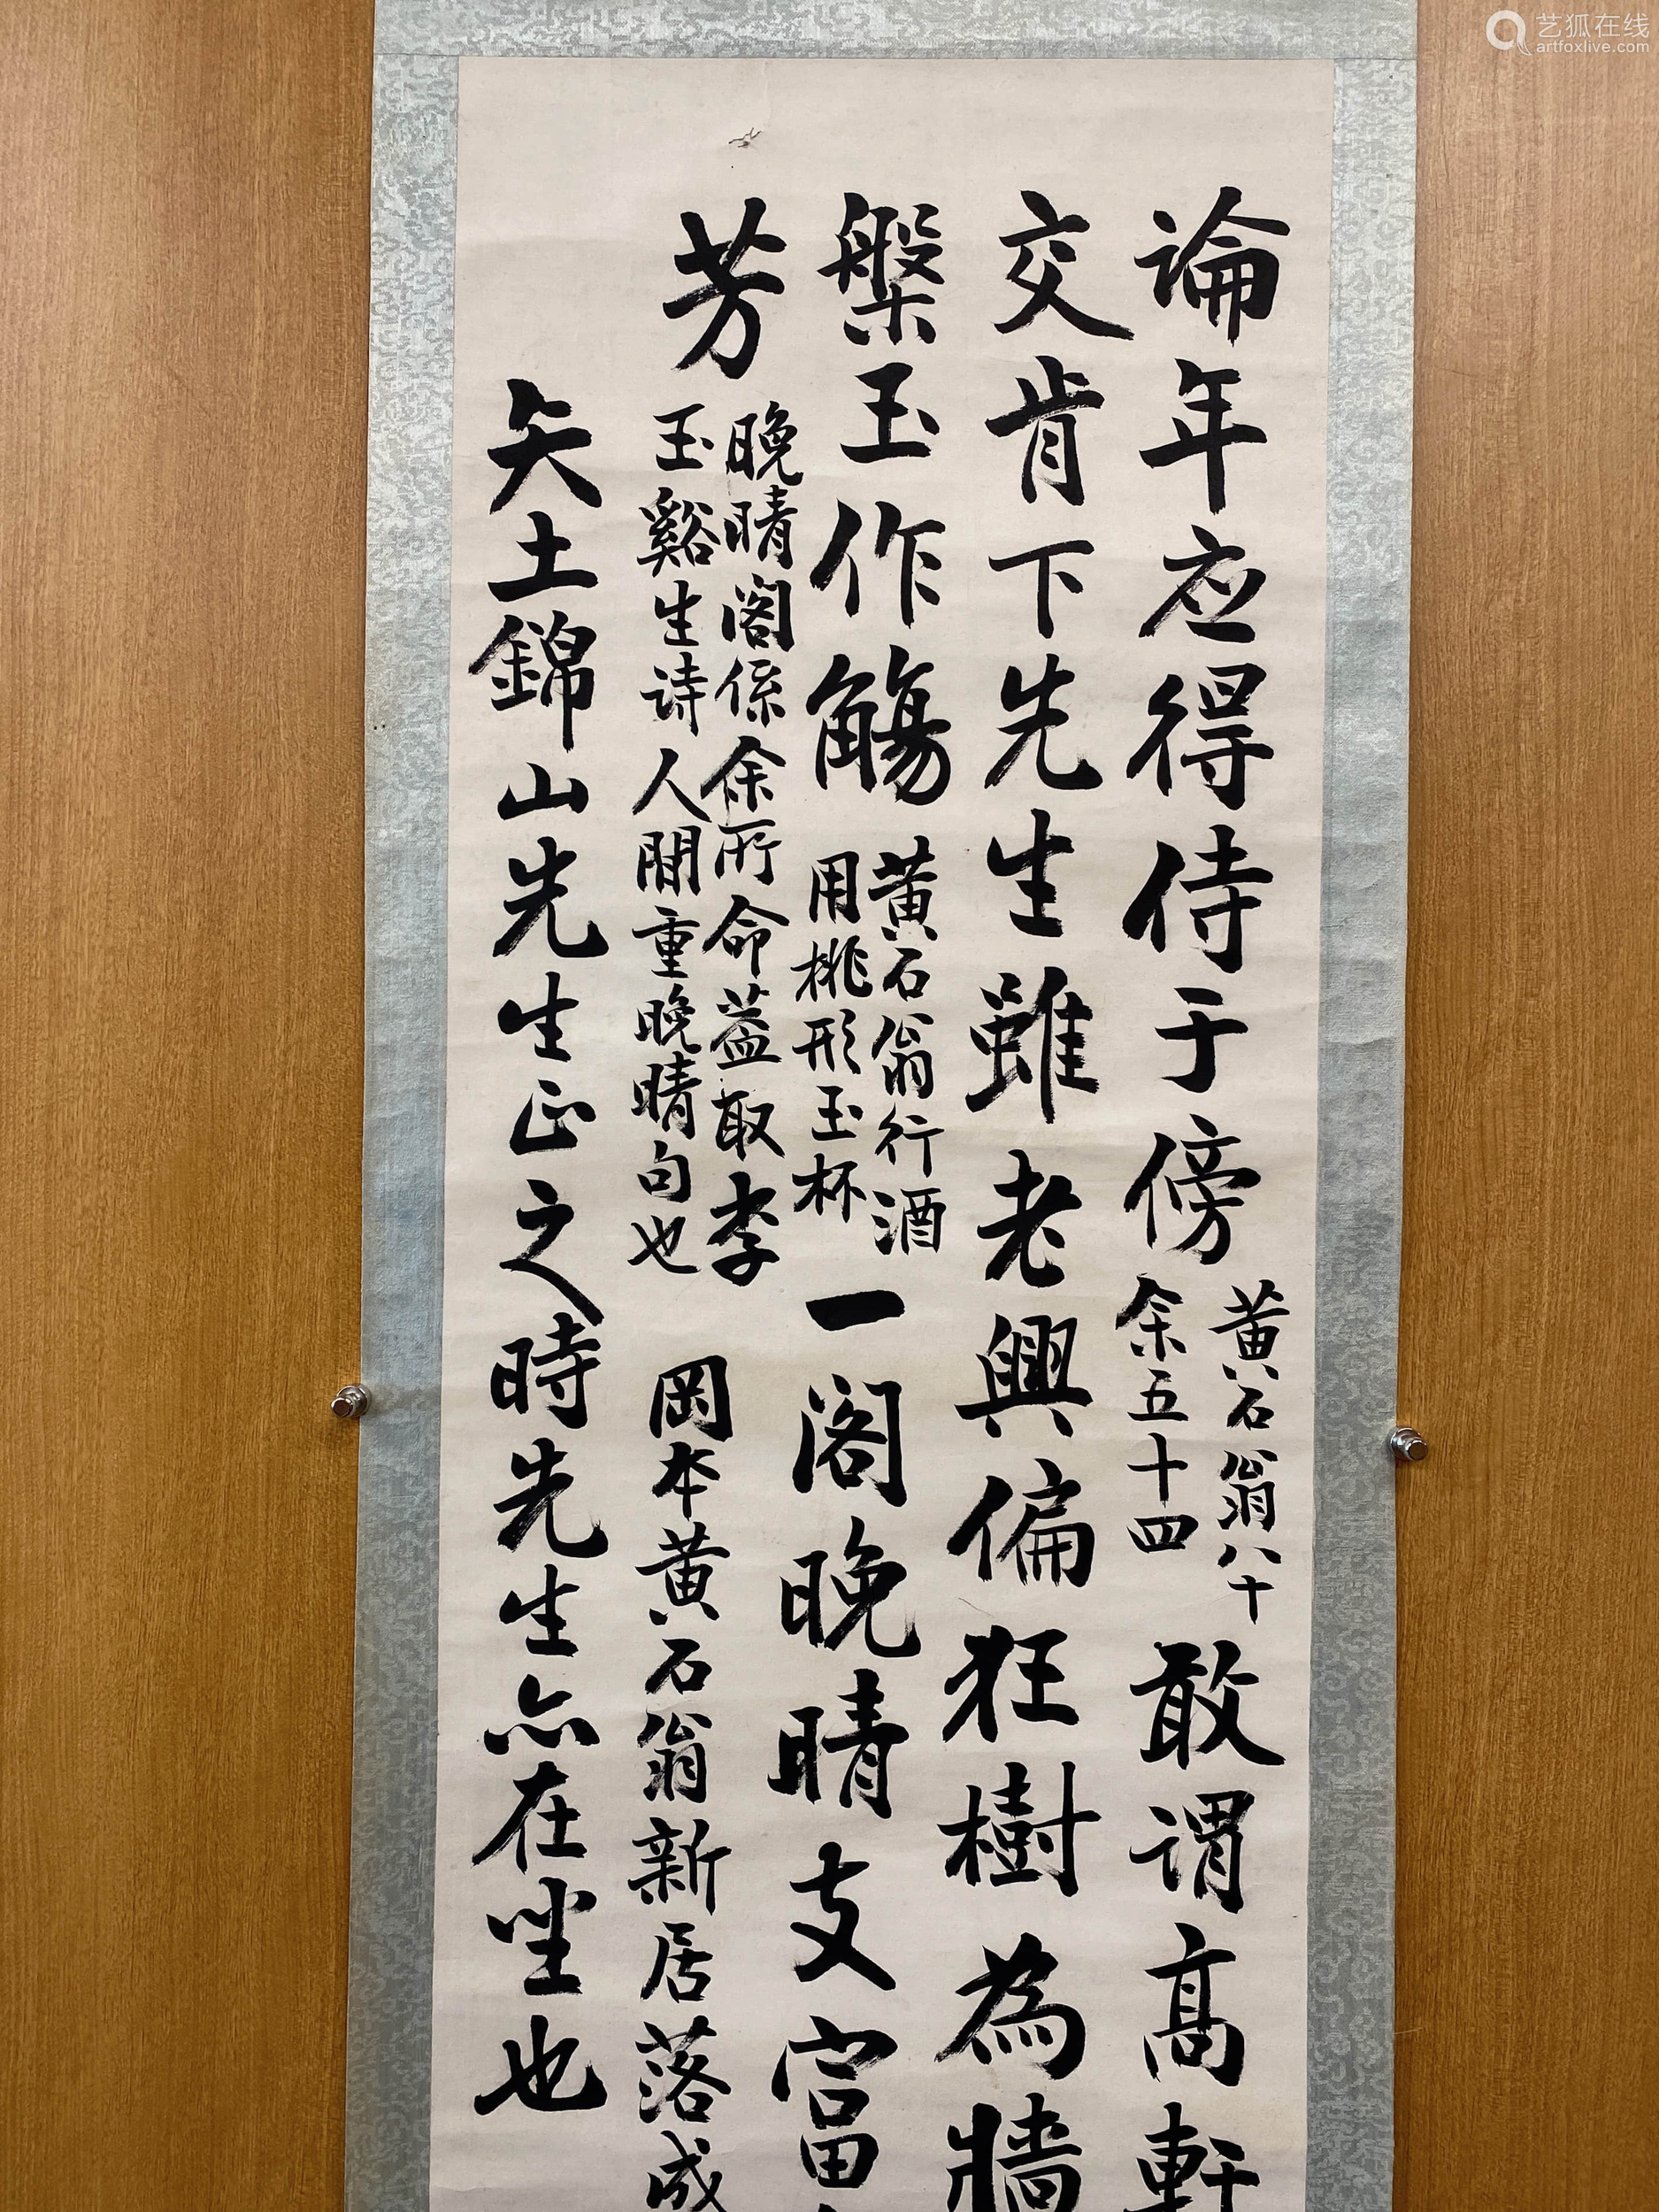 論年应得侍于傍
黄石翁八十
余五十四
敢谓高軒
交肯下先生雖老興偏狂樹為牆
槃玉作觴
黄石翁行酒
用桃形玉杯
一阁晚晴支富
芳
晚晴阁係余所命葢取李
玉谿生诗人間重晚晴句也
岡本黄石翁新居落成
矢土錦山先生正之時先生亦在坐也
艺狐在线
artfoxlive.com